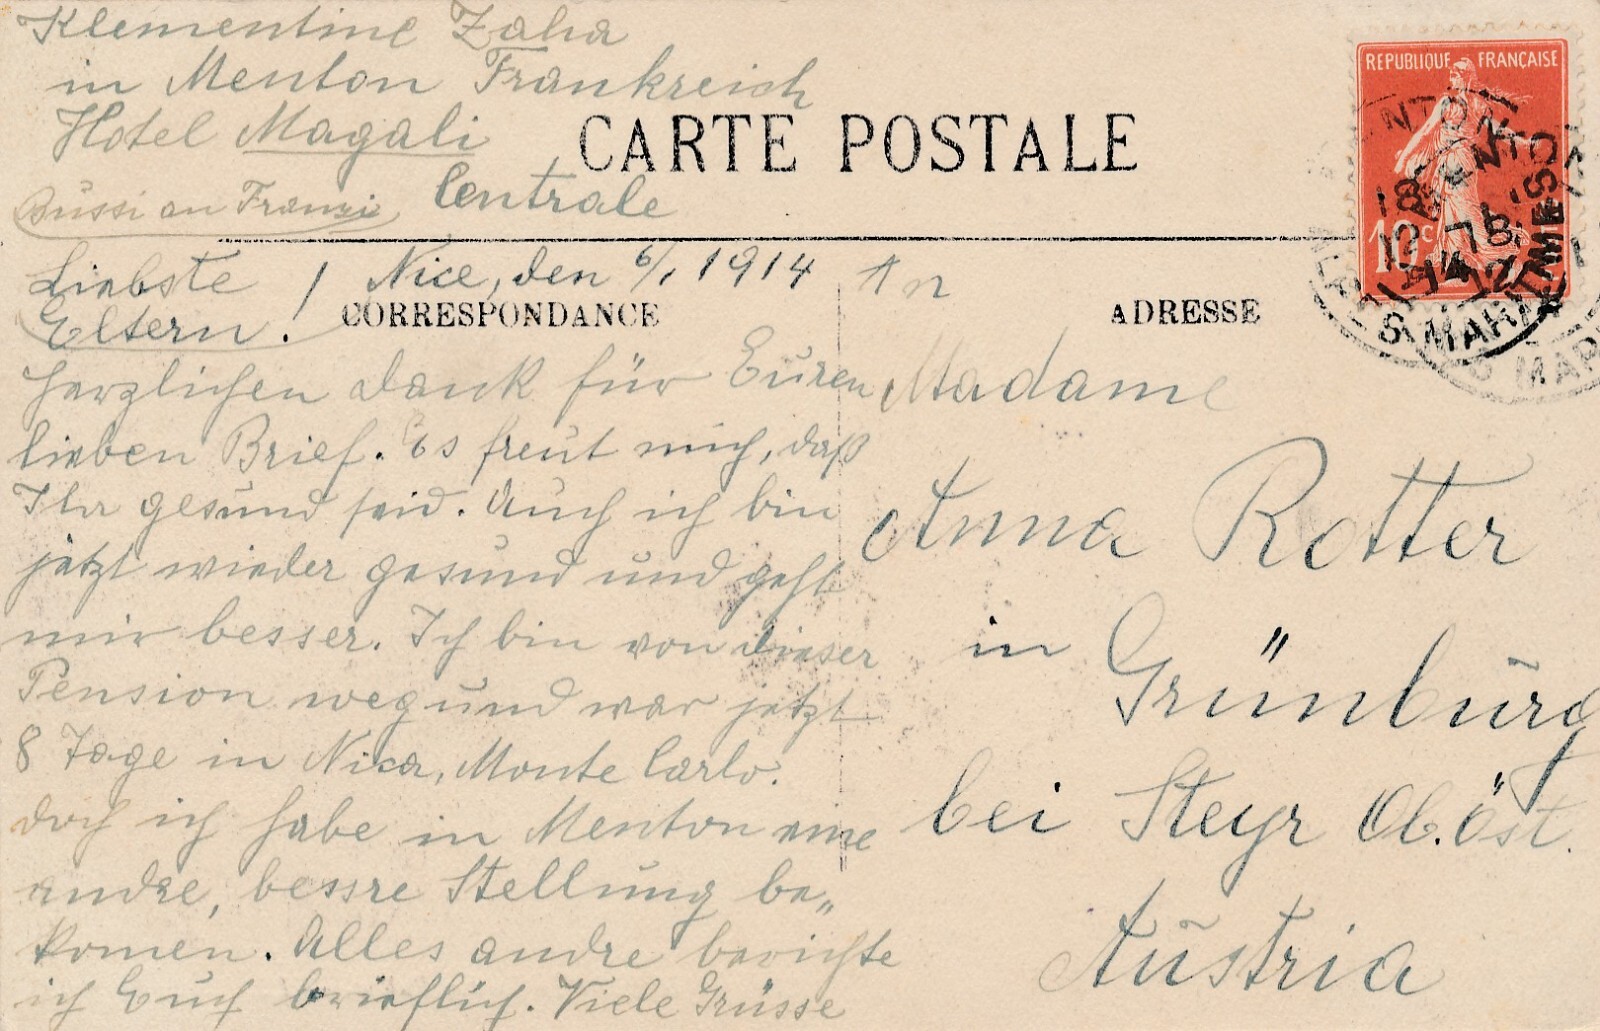 Klementine Zaha
in Menton Frankreich
Hotel Magali
Centrale
Bussi an Franzi
CARTE POSTALE
REPUBLIQUE FRANÇAISE
10c
Liebste
Eltern!
Nice, den 6/1 1914
CORRESPONDANCE
herzlichen Dank für Euren
lieben Brief. Es freut mich, daß
Ihr gesund seid. Auch ich bin
jetzt wieder gesund und geht
mir besser. Ich bin von dieser
Pension weg und war jetzt
8 Tage in Nica, Monte Carlo.
doch ich habe in Menton eine
andre, bessre Stellung be„
komen. Alles andre berichte
ich Euch brieflich. Viele Grüsse
An
ADRESSE
Madame
Anna Rotter
in Grünburg
bei Steyr Ob. Öst.
Austria